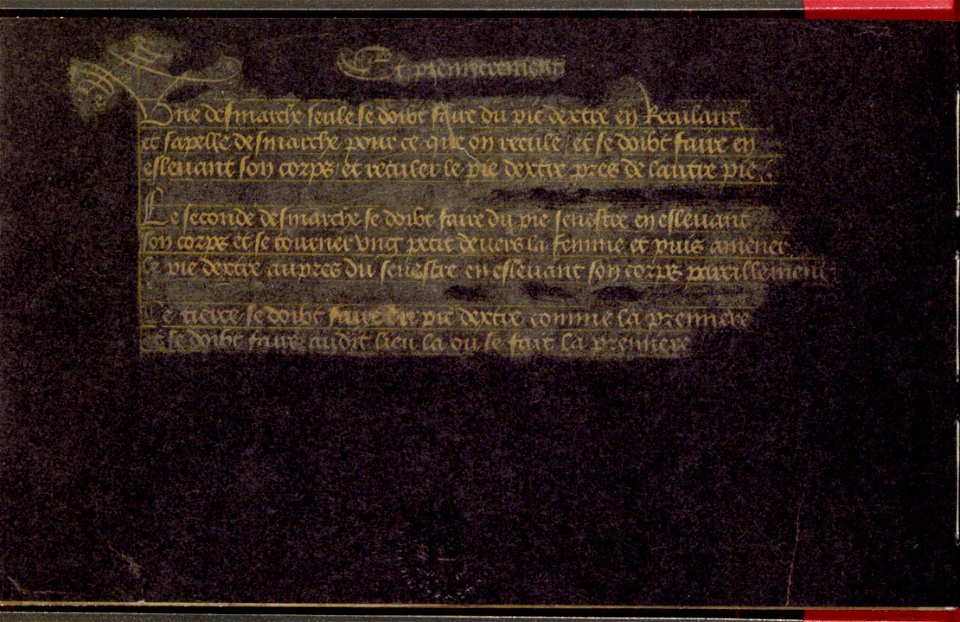 Et premierement
Une desmarche seule se doibt faire du pie dextre en Reculant
et sapelle desmarche pour ce que on recule / et se doibt faire en
eslevant son corps / et reculer le pie dextre pres de lautre pie /.
Le seconde desmarche se doibt faire du pie senestre en eslevant
son corps et se tourner ung petit devers la femme et puis amener
le pie dextre aupres du senestre en eslevant son corps pareillement
Le tierce se doibt faire du pie dextre comme la premiere
et se doibt faire audit lieu la ou se fait la premiere